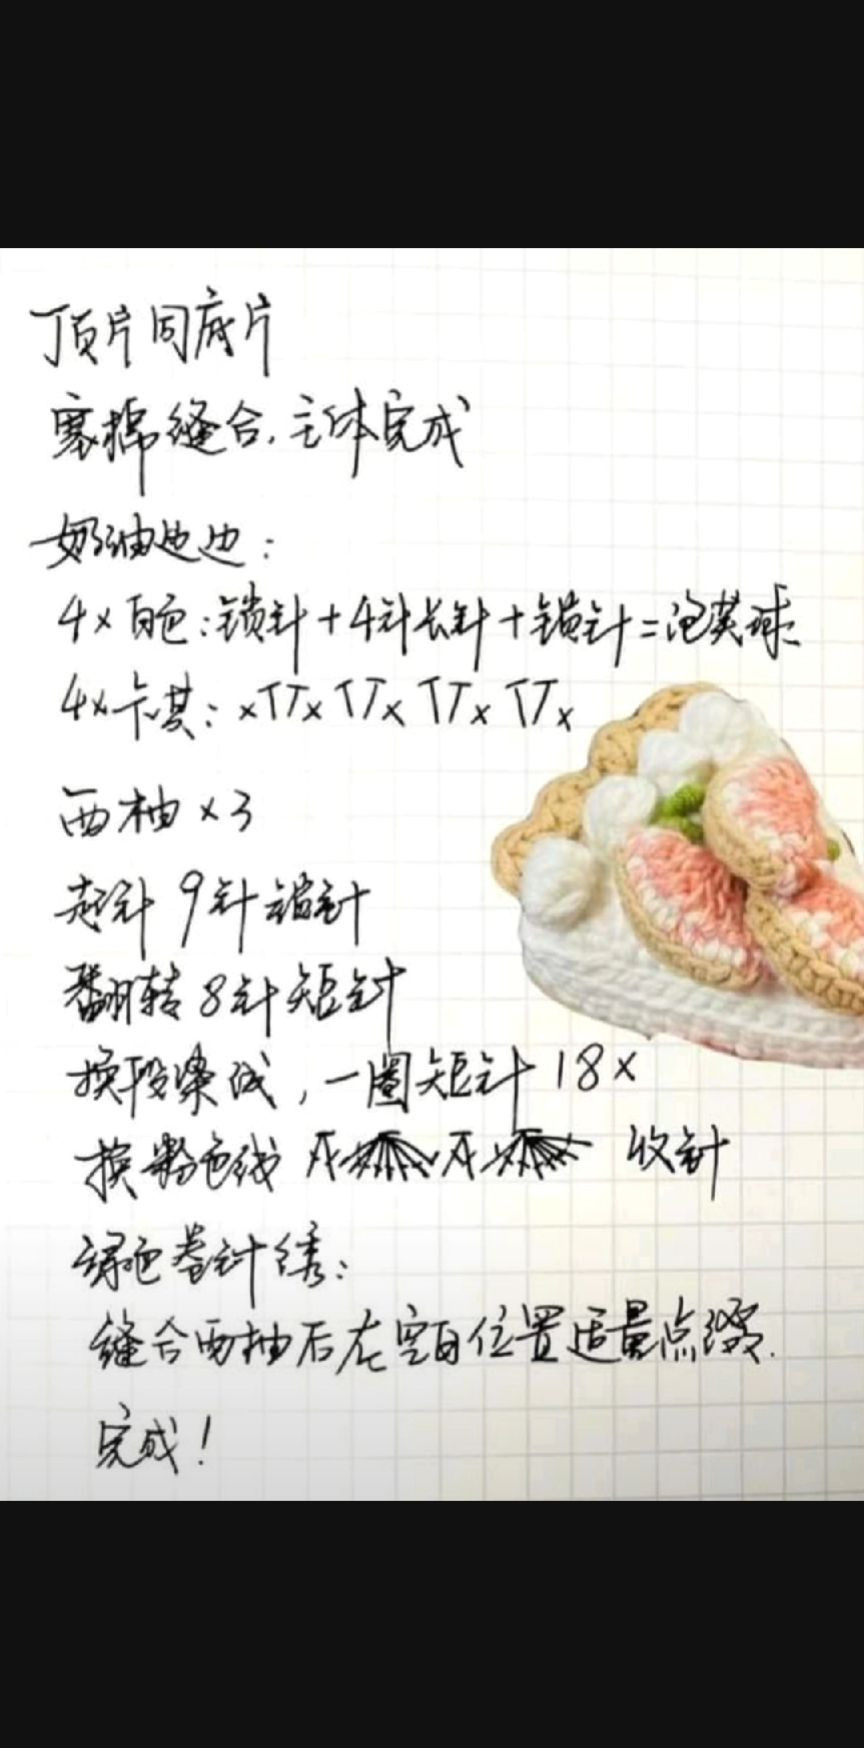 顶片同底片
塞棉缝合,主体完成
奶油边边:
4×白色:锁针+4针长针+锁针=泡芙球
4×卡其:×TT×TT×TT×TT×
西柚×3
起针 9针锁针
翻转 8针短针
换段染线,一圈短针 18×
换粉色线 收针
绿色卷针绣:
缝合西柚后在空白位置适量点缀.
完成!